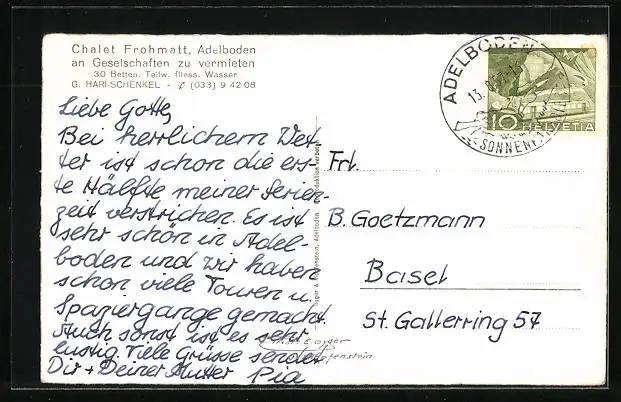 Chalet Frohmatt, Adelboden
an Gesellschaften zu vermieten
30 Betten. Teilw. fliess. Wasser
G. HARI-SCHENKEL - ✆ (033) 9 42 08
Liebe Gotte,
Bei herrlichem Wet-
ter ist schon die ers-
te Hälfte meiner Ferien-
zeit verstrichen. Es ist
sehr schön in Adel-
boden und wir haben
schon viele Touren u.
Spaziergänge gemacht.
Auch sonst ist es sehr
lustig. Viele Grüsse sendet
Dir + Deiner Mutter Pia
Adelboden
ADELBODEN
13.
SONNEN
10 HELVETIA
Frl.
B. Goetzmann
Basel
St. Gallerring 57